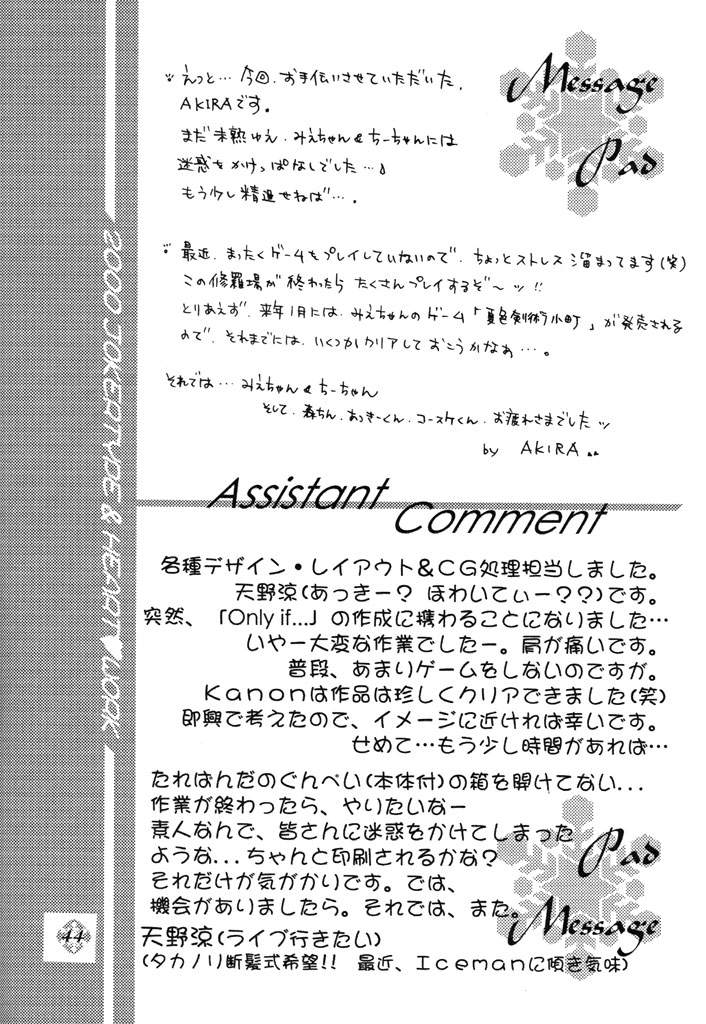 Message
Pad
えっと… 今回、お手伝いさせていただいた、
AKIRAです。
まだ未熟ゆえ、みえちゃん&ちーちゃんには
迷惑をかけっぱなしでした…♪
もう少し精進せねば…。
最近、まったくゲームをプレイしていないので、ちょっとストレス溜まってます(笑)
この修羅場が終わったら たくさんプレイするぞ〜ッ!!
とりあえず、来年1月には、みえちゃんのゲーム「夏色剣術小町」が発売される
ので、それまでには、いくつかクリアして おこうかなぁ…。
それでは… みえちゃん&ちーちゃん
そして、森ちん、あっきーくん、コースケくん、お疲れさまでしたッ
by AKIRA
2000 JOKERTYPE & HEART♥WORK
Assistant
Comment
各種デザイン・レイアウト&CG処理担当しました。
天野涼(あっきー? ほわいてぃー??)です。
突然、「Only if...」の作成に携わることになりました…
いやー大変な作業でしたー。肩が痛いです。
普段、あまりゲームをしないのですが。
Kanonは作品は珍しくクリアできました(笑)
即興で考えたので、イメージに近ければ幸いです。
せめて…もう少し時間があれば…
たればんだのぐんぺい(本体付)の箱を開けてない...
作業が終わったら、やりたいなー
素人なんで、皆さんに迷惑をかけてしまった
ような...ちゃんと印刷されるかな?
それだけが気がかりです。では、
機会がありましたら。それでは、また。
天野涼(ライブ行きたい)
(タカノリ断髪式希望!! 最近、Icemanに傾き気味)
Pad
Message
44